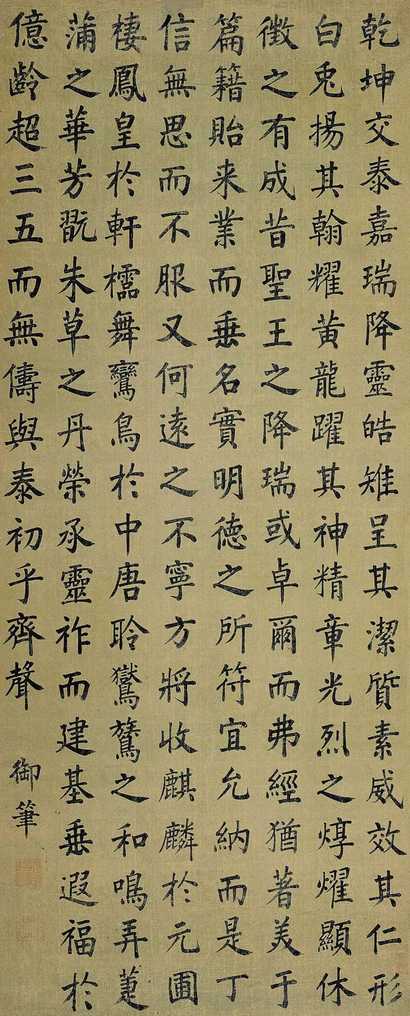 乾坤交泰嘉瑞降靈皓雉呈其潔質素威效其仁形
白兎揚其翰耀黃龍躍其神精章光烈之焞燿顯休
徴之有成昔聖王之降瑞或卓爾而弗經猶著美于
篇籍貽来業而垂名實明德之所符宜允納而是丁
信無思而不服又何遠之不寧方將收麒麟於元圃
棲鳳皇於軒櫺舞鸞鳥於中唐聆鸑鷟之和鳴弄萐
蒲之華芳翫朱草之丹榮承靈祚而建基垂遐福於
億齡超三五而無儔與泰初乎齊聲
御筆